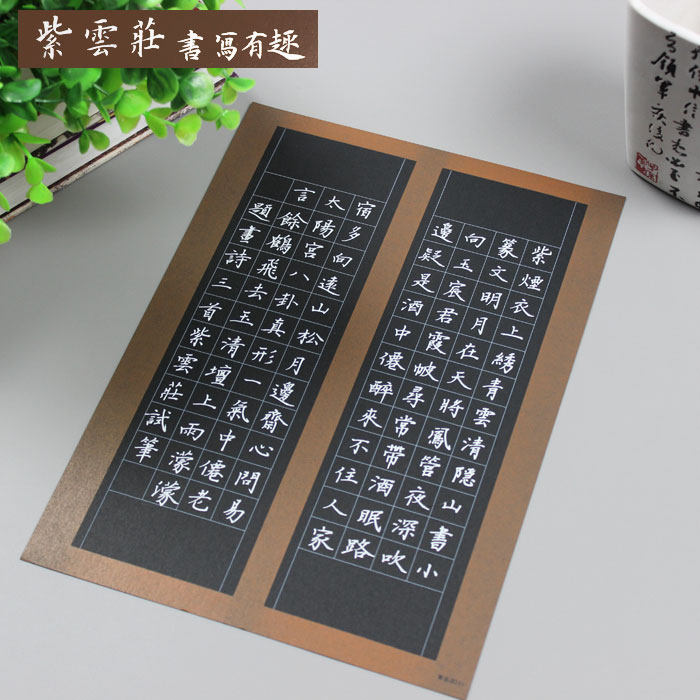 紫雲莊 書寫有趣
紫煙衣上綉青雲清隱山書小
篆文明月在天將鳳管夜深吹
向玉宸君霞帔尋常帶酒眠路
邊疑是酒中僊醉來不住人家
宿多向遠山松月邊齋心問易
太陽宮八卦真形一氣中僊老
言餘鶴飛去玉清壇上雨濛濛
題畫詩三首紫雲莊試筆